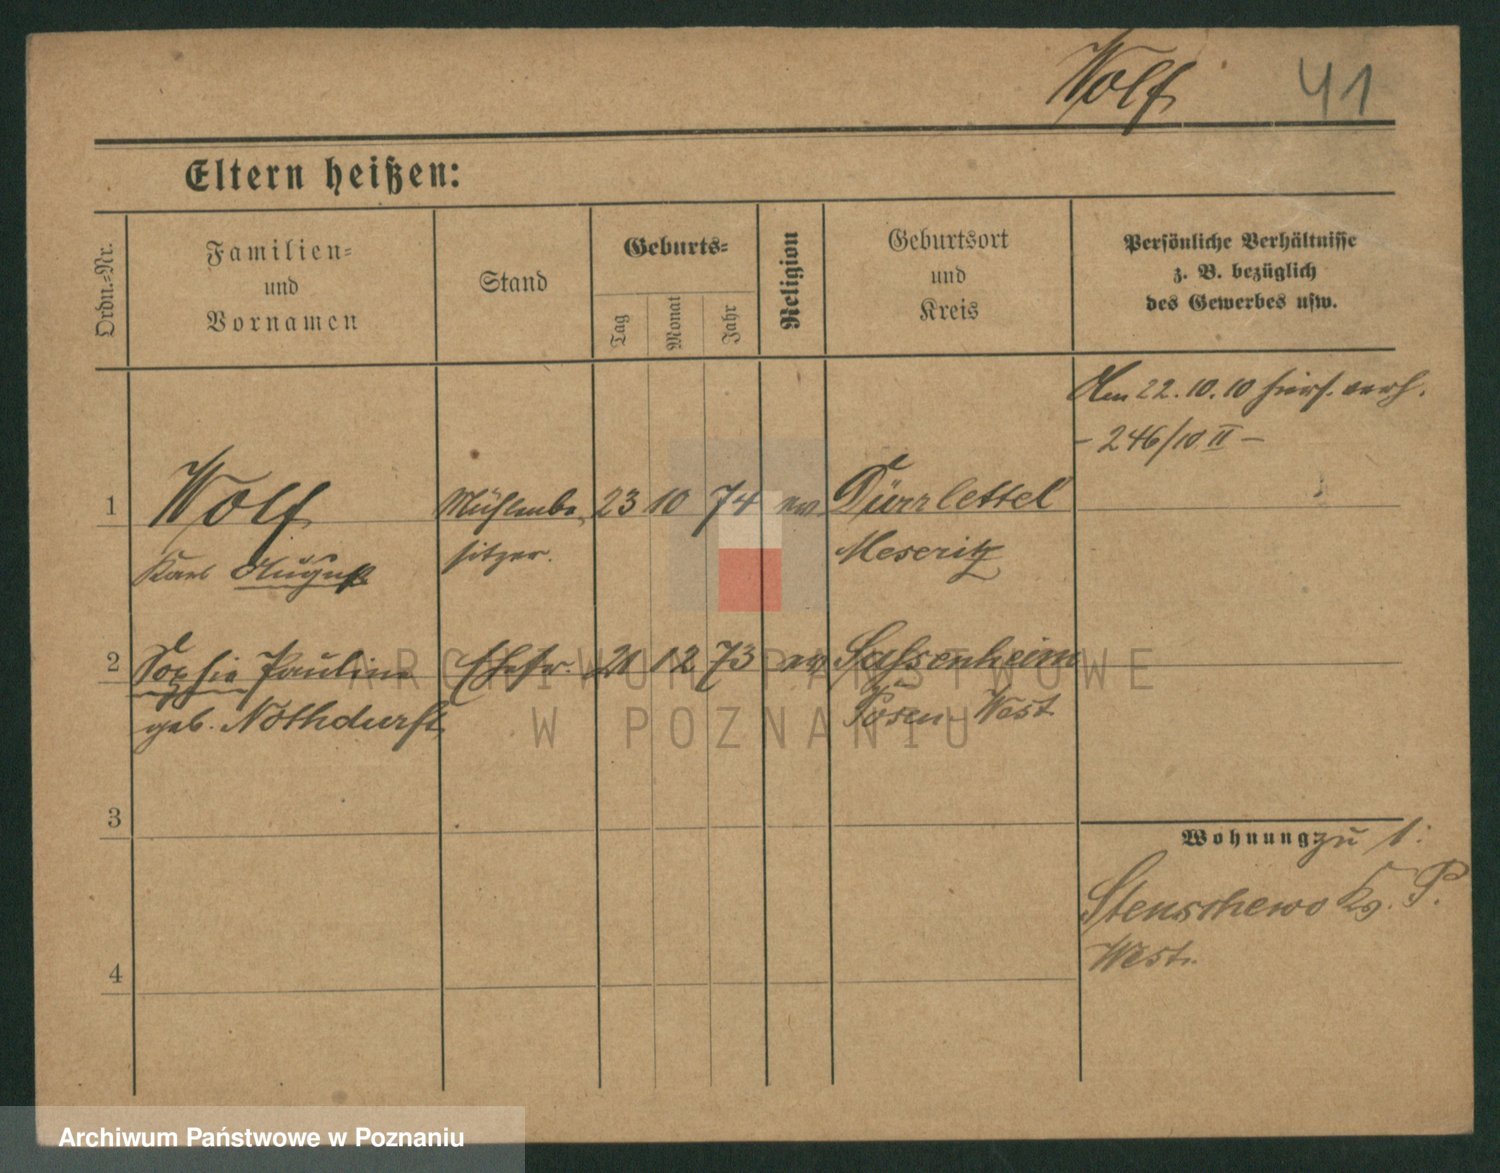 Wolf 41
Eltern heißen:
Ordn.-Nr.
Familien-
und
Vornamen
Stand
Geburts-
Tag
Monat
Jahr
Religion
Geburtsort
und
Kreis
Persönliche Verhältnisse
z. B. bezüglich
des Gewerbes usw.
Am 22.10.10 hiers. verh.
- 246/10 II -
1 Wolf Mühlenbe- 23 10 74 ev. Dürrlettel
Karl August sitzer. Meseritz
2 Sophie Pauline Ehefr. 21 12 73 ev Sassenheim
geb. Nothdurft Posen-West
3
Wohnung zu 1:
Stenschewo Kr. P.
West.
4
ARCHIWUM PAŃSTWOWE
W POZNANIU
Archiwum Państwowe w Poznaniu